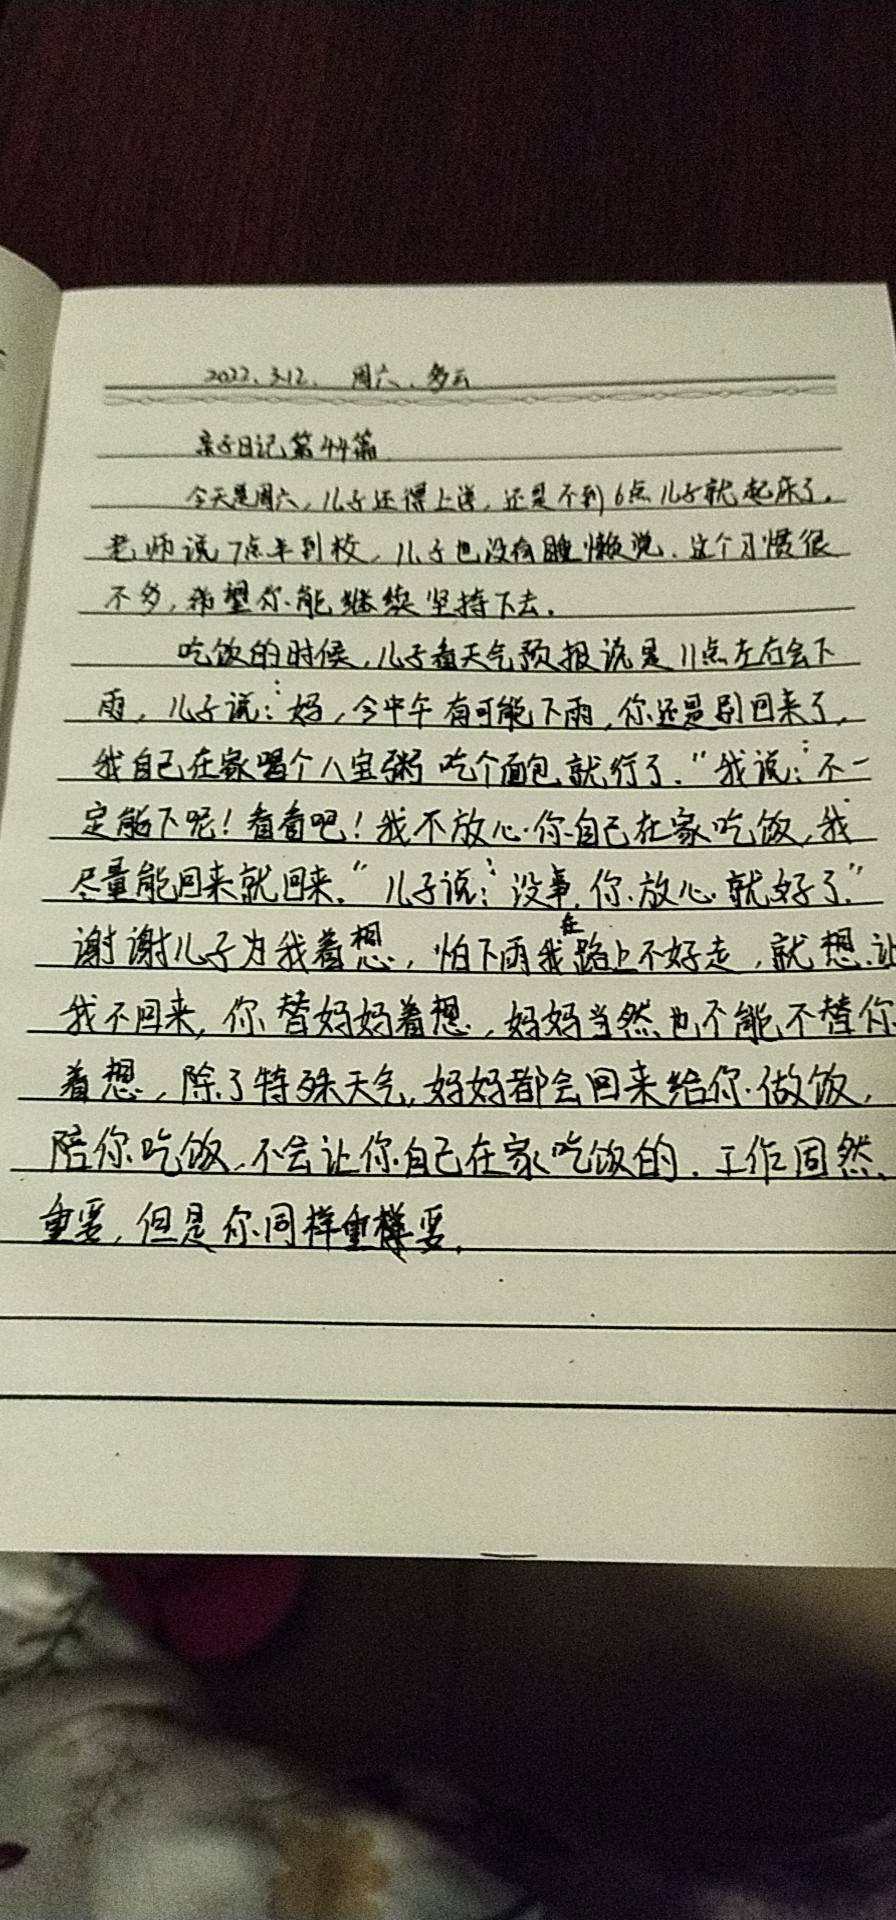 2022.3.12. 周六、多云
亲子日记第44篇
今天是周六，儿子还得上课，还是不到6点儿子就起床了。
老师说7点半到校，儿子也没有睡懒觉，这个习惯很
不多，希望你能继续坚持下去。
吃饭的时候，儿子看天气预报说是11点左右会下
雨，儿子说：“妈，今中午有可能下雨，你还是别回来了，
我自己在家喝个八宝粥吃个面包就行了。”我说：“不一
定能下呢！看看吧！我不放心你自己在家吃饭，我
尽量能回来就回来。”儿子说：“没事，你放心就好了。”
谢谢儿子为我着想，怕下雨我在路上不好走，就想让
我不回来，你替妈妈着想，妈妈当然也不能不替你
着想，除了特殊天气，妈妈都会回来给你做饭，
陪你吃饭，不会让你自己在家吃饭的。工作固然
重要，但是你同样重要。